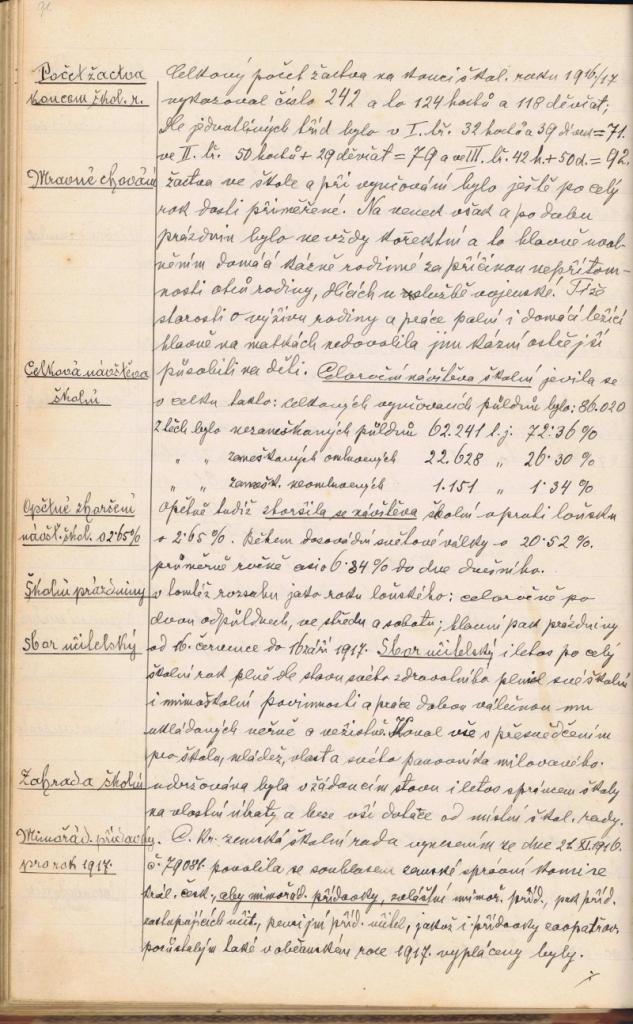 Počet žactva
koncem škol. r.
Celkový počet žactva na konci škol. roku 1916/17
vykazoval číslo 242 a to 124 hochů a 118 děvčat;
dle jednotlivých tříd bylo v I. tř. 32 hochů a 39 děvčat = 71.
ve II. tř. 50 hochů + 29 děvčat = 79 a ve III. tř. 42 h. + 50 d. = 92.
Mravné chování
žactva ve škole a při vyučování bylo ještě po celý
rok dosti přiměřené. Na venek však a po dobu
prázdnin bylo ne vždy kořektní a to hlavně
domácí kázně rodinné za příčinou nepřítom-
nosti otců rodiny, dlících u službě vojenské. Tíže
starosti o výživu rodiny a práce polní i domácí ležící
hlavně na matkách nedovolila jim kázní ostřejší
působiti na děti.
Celková návštěva
školní
Celoroční návštěva školní jevila se
v celku takto: celkových vyučovacích půldnů bylo: 86.020
Z těch bylo nezameškaných půldnů 62.241 t.j. 72·36 %
" " zameškaných omluvených 22.628 " 26·30 %
" " zamešk. neomluvených 1.151 " 1·34 %
Opětné zhoršení
návšt. škol. o 2·65 %
Opětně tudíž zhoršila se návštěva školní oproti loňsku
o 2·65 %. Během dosavádní světové války o 20·52 %.
průměrně ročně asi o 6·84 % do dne dnešního.
Školní prázdniny
v tomtéž rozsahu jako roku loňského: celoročně po
dvou odpůldnech, ve středu a sobotu; hlavní pak prázdniny
od 16. července do 16 září 1917.
Sbor učitelský
Sbor učitelský i letos po celý
školní rok plně dle stavu svého zdravotního plnil své školní
i mimoškolní povinnosti a práce dobou válečnou mu
ukládaných věrně a nezištně. Konal vše s přesvědčením
pro školu, mládež, vlast a svého panovníka milovaného.
Zahrada školní
udržována byla v žádoucím stavu i letos správcem školy
na vlastní útraty a beze vší dotace od místní škol. rady.
Mimořád. přídavky
pro rok 1917.
C. kr. zemská školní rada vynesením ze dne 21. XI. 1916.
č. 79081 povolila se souhlasem zemské správní komise
král. česk., aby mimořád. přídavky, zvláštní mimoř. příd., pak příd.
zastupujících učit., penzijní příd. učitel, jakož i přídavky zaopatřov.
pozůstalým také v občanském roce 1917. vypláceny byly.